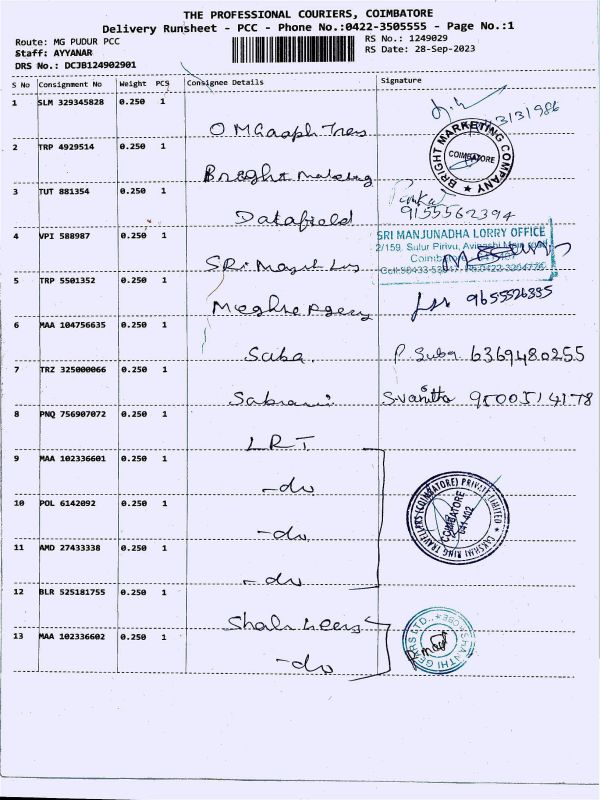 THE PROFESSIONAL COURIERS, COIMBATORE
Delivery Runsheet - PCC - Phone No.:0422-3505555 - Page No.:1
Route: MG PUDUR PCC
RS No.: 1249029
Staff: AYYANAR
RS Date: 28-Sep-2023
DRS No.: DCJB124902901
S No Consignment No Weight PCS Consignee Details Signature
1 SLM 329345828 0.250 1
2 TRP 4929514 0.250 1
BRIGHT MARKETING COMPANY
COIMBATORE
3 TUT 881354 0.250 1
Datafield 9155562394
4 VPI 588987 0.250 1
SRI MANJUNADHA LORRY OFFICE
2/159, Sulur Pirivu,
5 TRP 5501352 0.250 1
9655526395
6 MAA 104756635 0.250 1
Saba. P. Suba 6369480255
7 TRZ 325000066 0.250 1
S.vanitha
8 PNQ 756907072 0.250 1
LRT
9 MAA 102336601 0.250 1
-do
10 POL 6142092 0.250 1
-do
LAKSHMI RING TRAVELLERS (COIMBATORE) PRIVATE LIMITED
COIMBATORE
641 402
11 AMD 27433338 0.250 1
-do
12 BLR 525181755 0.250 1
13 MAA 102336602 0.250 1
-do
SHANTHI GEARS LTD.,